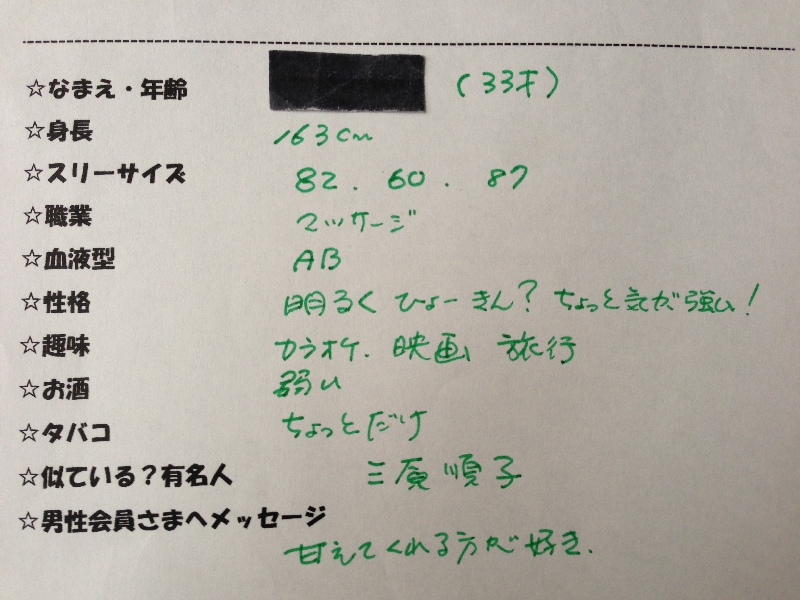 ☆なまえ・年齢 (33才)
☆身長 163cm
☆スリーサイズ 82. 60. 87
☆職業 マッサージ
☆血液型 AB
☆性格 明るく ひょーきん? ちょっと気が強い!
☆趣味 カラオケ. 映画 旅行
☆お酒 弱い
☆タバコ ちょっとだけ
☆似ている?有名人 三原順子
☆男性会員さまへメッセージ
甘えてくれる方が好き.